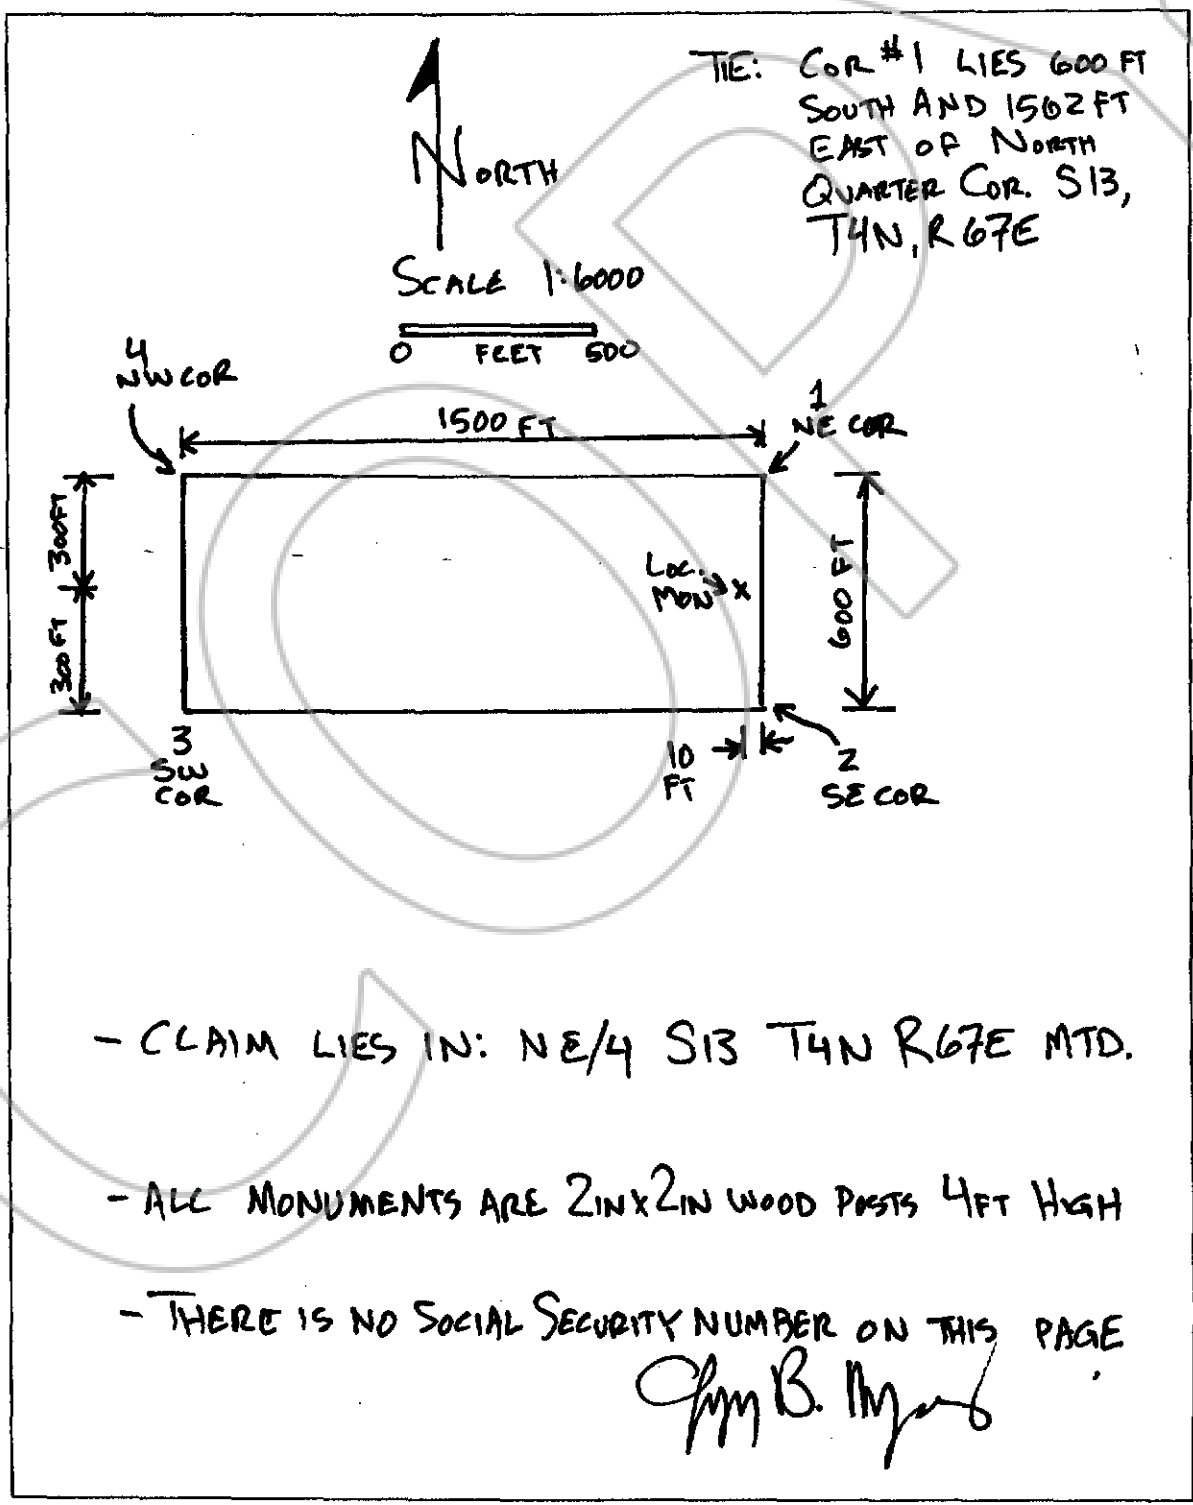 TIE: COR #1 LIES 600 FT
SOUTH AND 1502 FT
EAST OF NORTH
QUARTER COR. S13,
T4N, R67E
NORTH
SCALE 1:6000
0 FEET 500
4
NW COR
1500 FT
1
NE COR
300FT
300FT
LOC.
MON
X
600 FT
3
SW
COR
10
FT
2
SE COR
- CLAIM LIES IN: NE/4 S13 T4N R67E MTD.
- ALL MONUMENTS ARE 2INX2IN WOOD POSTS 4FT HIGH
- THERE IS NO SOCIAL SECURITY NUMBER ON THIS PAGE
B.
COP